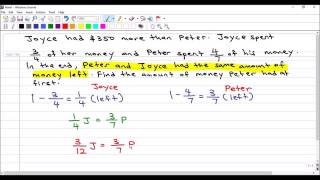 Joyce had $350 more than Peter. Joyce spent
3/4 of her money and Peter spent 4/7 of his money.
In the end, Peter and Joyce had the same amount of
money left. Find the amount of money Peter had at
first.
Joyce Peter
1 - 3/4 = 1/4 (left) 1 - 4/7 = 3/7 (left)
1/4 J = 3/7 P
3/12 J = 3/7 P